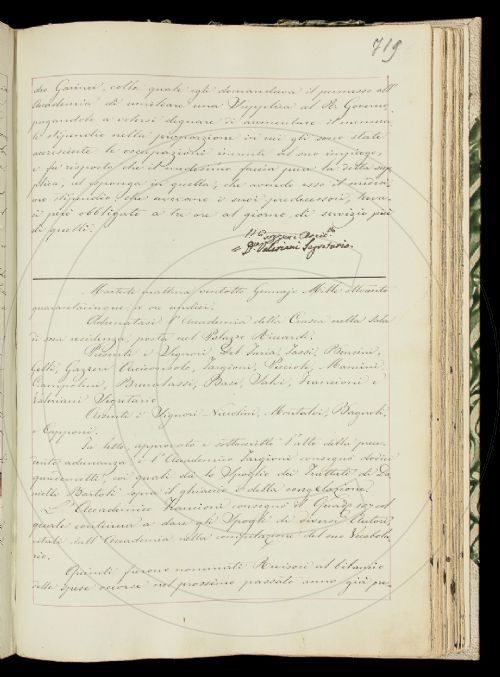 719
dro Garinei, colla quale egli domandava il permesso all'
Accademia di umiliare una Supplica al R. Governo,
pregandolo a volersi degnare di aumentare il meschi-
lo stipendio nella proporzione in cui gli sono state
accresciute le occupazioni inerenti al suo impiego,
e fu risposto che il medesimo faccia pure la detta sup-
plica, ed esponga in quella, che avendo esso il mede-
mo stipendio che avevano i suoi predecessori, trova-
si però obbligato a tre ore al giorno di servizio più
di quelli.
Valeriani Segretario.
Martedì mattina ventotto Gennajo Mille ottocento
quarantacinque a ore undici.
Adunatasi l'Accademia della Crusca nella Sala
di sua residenza posta nel Palazzo Riccardi.
Presenti i Signori Del Furia, Tassi, Bencini,
Gelli, Gazzeri Arciconsolo, Targioni, Piccioli, Mannini,
Casigliani, Brunacassi, Basi, Salvi, Francioni e
Valeriani Segretario.
Assenti i Signori Niccolini, Montalvi, Bagnoli,
e Capponi.
Fu letto, approvato e sottoscritto l'atto della prece-
dente adunanza e l'Accademico Targioni consegnò dodici
quadernetti, coi quali dà lo Spoglio dei Trattati di Da-
niello Bartoli sopra il ghiaccio e della congelazione.
L'Accademico Francioni consegnò il Quado 197 col
quale continua a dare gli Spogli di diversi Autori,
citati dall'Accademia nella compilazione del suo Vocabola-
rio.
Quindi furono nominati Revisori al bilancio
delle spese occorse nel prossimo passato anno già pre-